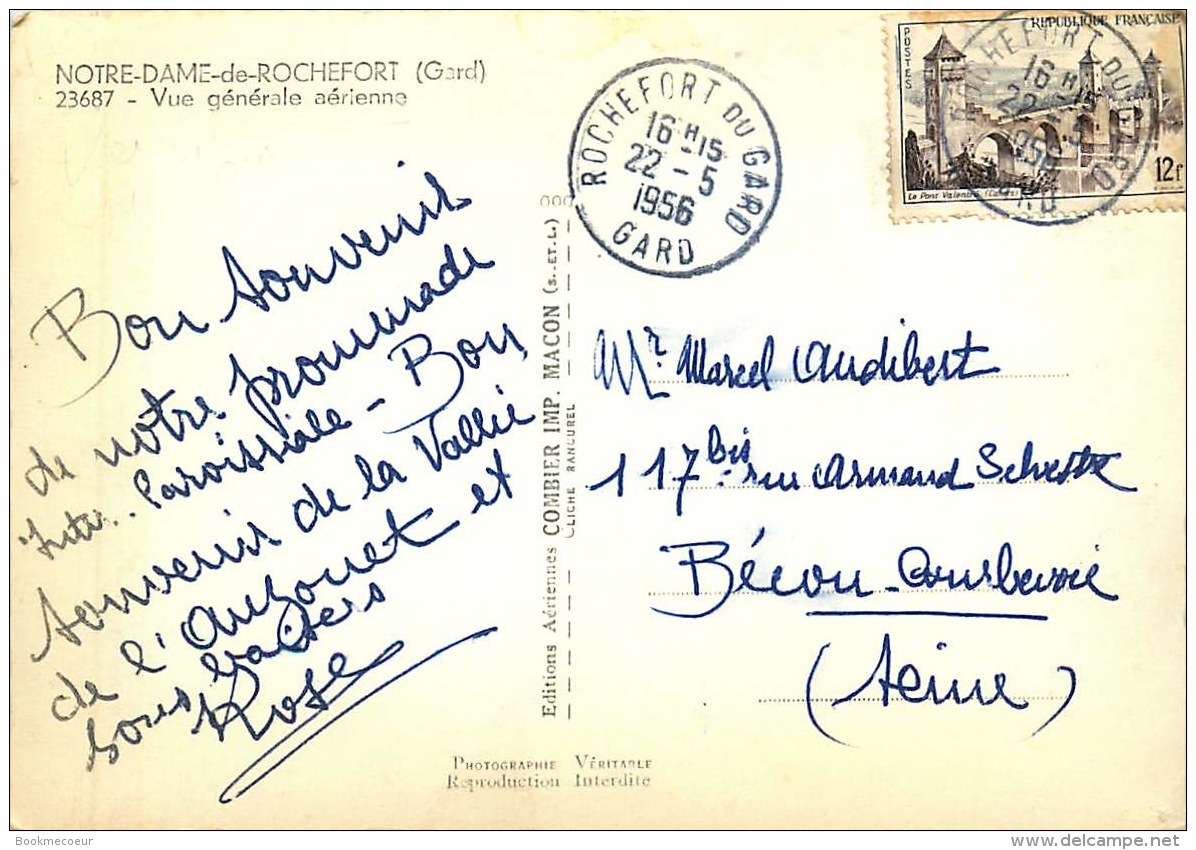 NOTRE-DAME-de-ROCHEFORT (Gard)
23687 - Vue générale aérienne
Bon souvenir
de notre promenade
Inter.. Paroissiale - Bon
souvenir de la Vallée
de l'Auzonet et
bons baisers
Rose
Editions Aériennes COMBIER IMP. MACON (S. ET. L.)
CLICHÉ RANCUREL
PHOTOGRAPHIE VÉRITABLE
Reproduction Interdite
ROCHEFORT DU GARD
16 H 15
22 - 5
1956
GARD
REPUBLIQUE FRANÇAISE
POSTES
12f
Le Pont Valentré (Cahors)
ROCHEFORT DU GARD
16 H 15
22 - 5
1956
GARD
Mr Marcel Audibert
117 bis rue Armand Silvestre
Bécon-Courbevoie
(Seine)
Bookmecoeur
delcampe.net